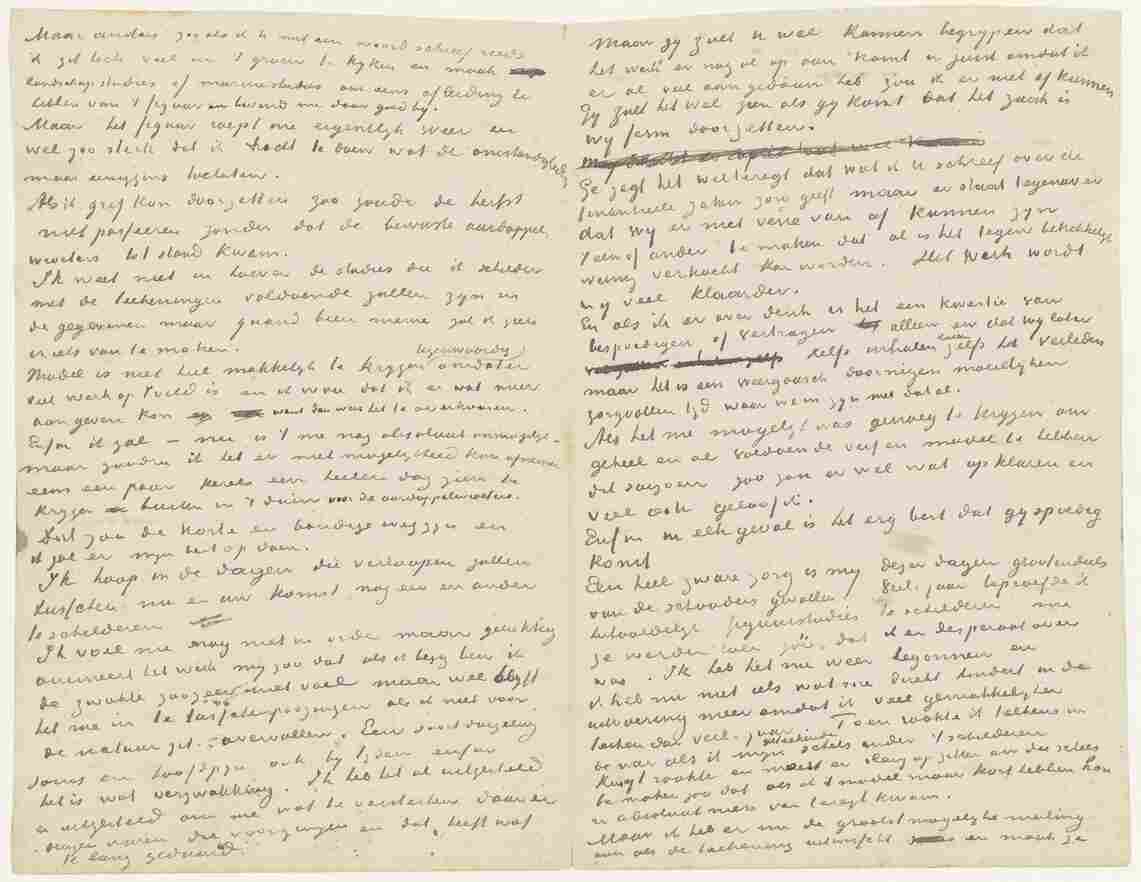 Maar anders zooals ik U met een woord schreef reeds
ik zit toch veel in 't groen te kyken en maak
landschapstudies of marinestudies om eens afleiding te
hebben van 't figuur en bevind me daar goed by.
Maar het figuur roept me eigentlyk weer en
wel zoo sterk dat ik tracht te doen wat de omstandigheden
maar eenigzins toelaten.
Als ik grif kon doorzetten zoo zoude de herfst
niet passeeren zonder dat de bewuste aardappel
wroeters tot stand kwam.
Ik weet niet in hoever de studies die ik schilder
met de teekeningen voldoende zullen zyn en
de gegevenen maar quand bien meme zal ik zien
er iets van te maken.
tegenwoordig
Model is niet heel makkelyk te krygen omdat er
veel werk op 't veld is en ik wou dat ik er wat meer
aan geven kon want dan was het te overwinnen.
Enfin ik zal – nu is 't me nog absoluut onmogelyk –
maar zoodra ik het er met mogelykheid kan afnemen
eens een paar kerels een heelen dag zien te
krygen buiten in 't duin voor de aardappelwroeters.
Dat zou de korte en bondige weg zyn en
ik zal er myn best op doen.
Ik hoop in de dagen die verloopen zullen
tusschen nu en uw komst nog een en ander
te schilderen
Ik voel me nog niet in orde maar gelukkig
animeert het werk my zoo dat als ik bezig ben ik
de zwakte zoozeer niet voel maar wel blyft
het me in de tusschenpoozingen als ik niet voor
de natuur zit overvallen. Een soort duizeling
soms en hoofdpyn ook by tyden enfin
het is wat verzwakking. Ik heb het al uitgesteld
en uitgesteld om me wat te versterken daar er
dingen waren die voorgingen en dat heeft wat
te lang geduurd.
Maar gy zult U wel kunnen begrypen dat
het werk er nog al op aan komt en juist omdat ik
er al veel aan gedaan heb zou ik er niet af kunnen
Gy zult het wel zien als gy komt dat het zaak is
wy ferm doorzetten.
Ge zegt het wel teregt dat wat ik U schreef over de
finantieele zaken zorg geeft maar er staat tegenover
dat wy er niet verre van af kunnen zyn
't een of ander te maken dat al is het tegen betrekkelyk
weinig verkocht kan worden. Het werk wordt
my veel klaarder.
En als ik er over denk is het een kwestie van
bespoedigen of vertragen alleen en dat wy later
zelfs inhalen zelfs het verleden
maar het is een weergaasch doornigen moeielyken
zorgvollen tyd waar we in zyn met dat al.
Als het me mogelyk was genoeg te krygen om
geheel en al voldoende verf en model te hebben
dit saizoen zoo zou er wel wat opklaren en
veel ook geloof ik.
Enfin in elk geval is het erg best dat gy spoedig
komt
Een heel zware zorg is my dezer dagen grootendeels
van de schouders gevallen. Verl. jaar beproefde ik
herhaaldelyk figuurstudies te schilderen me
ze werden toen zóó dat ik er desperaat over
was. Ik heb het nu weer begonnen en
ik heb nu niet iets wat me direkt hindert in de
uitvoering meer omdat ik veel gemakkelyker
teeken dan verl. jaar. Toen raakte ik telkens in
de war als ik myn schets onder 't schilderen
kwyt raakte en moest er lang op zitten om die schets
te maken zoo dat als ik 't model maar kort hebben kon
er absoluut niets van teregt kwam.
Maar ik heb er nu de grootst mogelyke maling
aan als de teekening uitwischt en maak ze